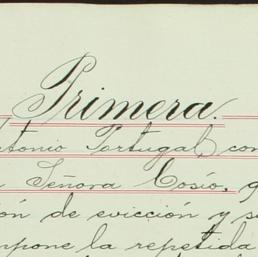 Primera.
ntonio Portugal, con
a Señora Cosío, q
ión de evicción y s
mpone la repetida